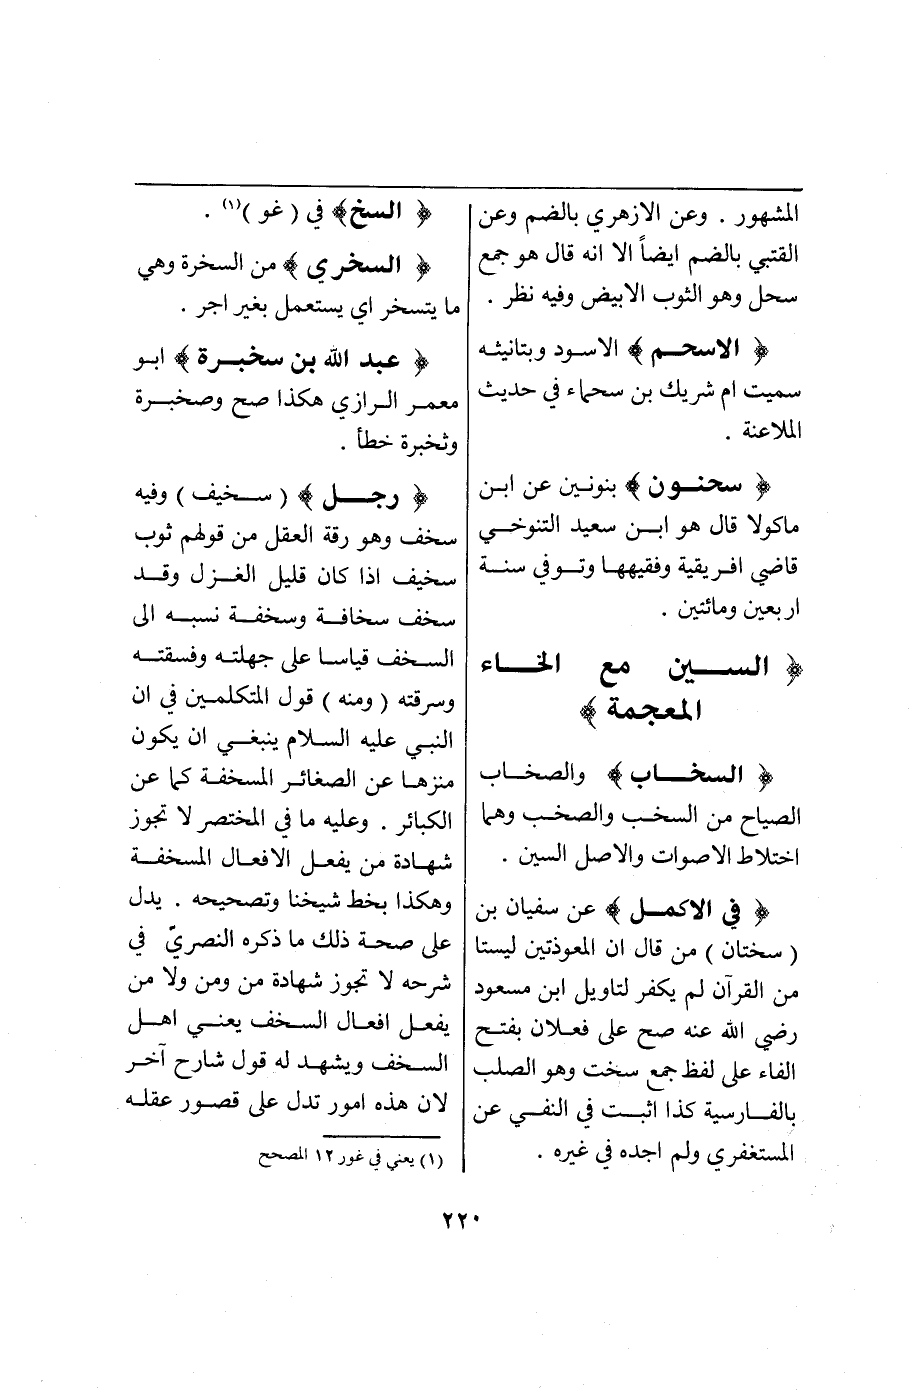 المشهور . وعن الازهري بالضم وعن
القتبي بالضم ايضاً الا انه قال هو جمع
سحل وهو الثوب الابيض وفيه نظر .
﴿ الاسحم ﴾ الاسود وبتانيثه
سميت ام شريك بن سحماء في حديث
الملاعنة .
﴿ سحنون ﴾ بنونين عن ابن
ماكولا قال هو ابن سعيد التنوخي
قاضي افريقية وفقيهها وتوفي سنة
اربعين ومائتين .
﴿ السين مع الخاء
المعجمة ﴾
﴿ السخاب ﴾ والصخاب
الصياح من السخب والصخب وهما
اختلاط الاصوات والاصل السين .
﴿ في الاكمل ﴾ عن سفيان بن
( سختان ) من قال ان المعوذتين ليستا
من القرآن لم يكفر لتاويل ابن مسعود
رضي الله عنه صح على فعلان بفتح
الفاء على لفظ جمع سخت وهو الصلب
بالفارسية كذا اثبت في النفي عن
المستغفري ولم اجده في غيره .
﴿ السخ ﴾ في ( غو )(١) .
﴿ السخري ﴾ من السخرة وهي
ما يتسخر اي يستعمل بغير اجر .
﴿ عبد الله بن سخبرة ﴾ ابو
معمر الرازي هكذا صح وصخبرة
وثخبرة خطأ .
﴿ رجل ﴾ ( سخيف ) وفيه
سخف وهو رقة العقل من قولهم ثوب
سخيف اذا كان قليل الغزل وقد
سخف سخافة وسخفة نسبه الى
السخف قياسا على جهلته وفسقته
وسرقته ( ومنه ) قول المتكلمين في ان
النبي عليه السلام ينبغي ان يكون
منزها عن الصغائر المسخفة كما عن
الكبائر . وعليه ما في المختصر لا تجوز
شهادة من يفعل الافعال المسخفة
وهكذا بخط شيخنا وتصحيحه . يدل
على صحة ذلك ما ذكره النصريّ في
شرحه لا تجوز شهادة من ومن ولا من
يفعل افعال السخف يعني اهل
السخف ويشهد له قول شارح آخر
لان هذه امور تدل على قصور عقله
(١) يعني في غور ١٢ المصحح
٢٢٠